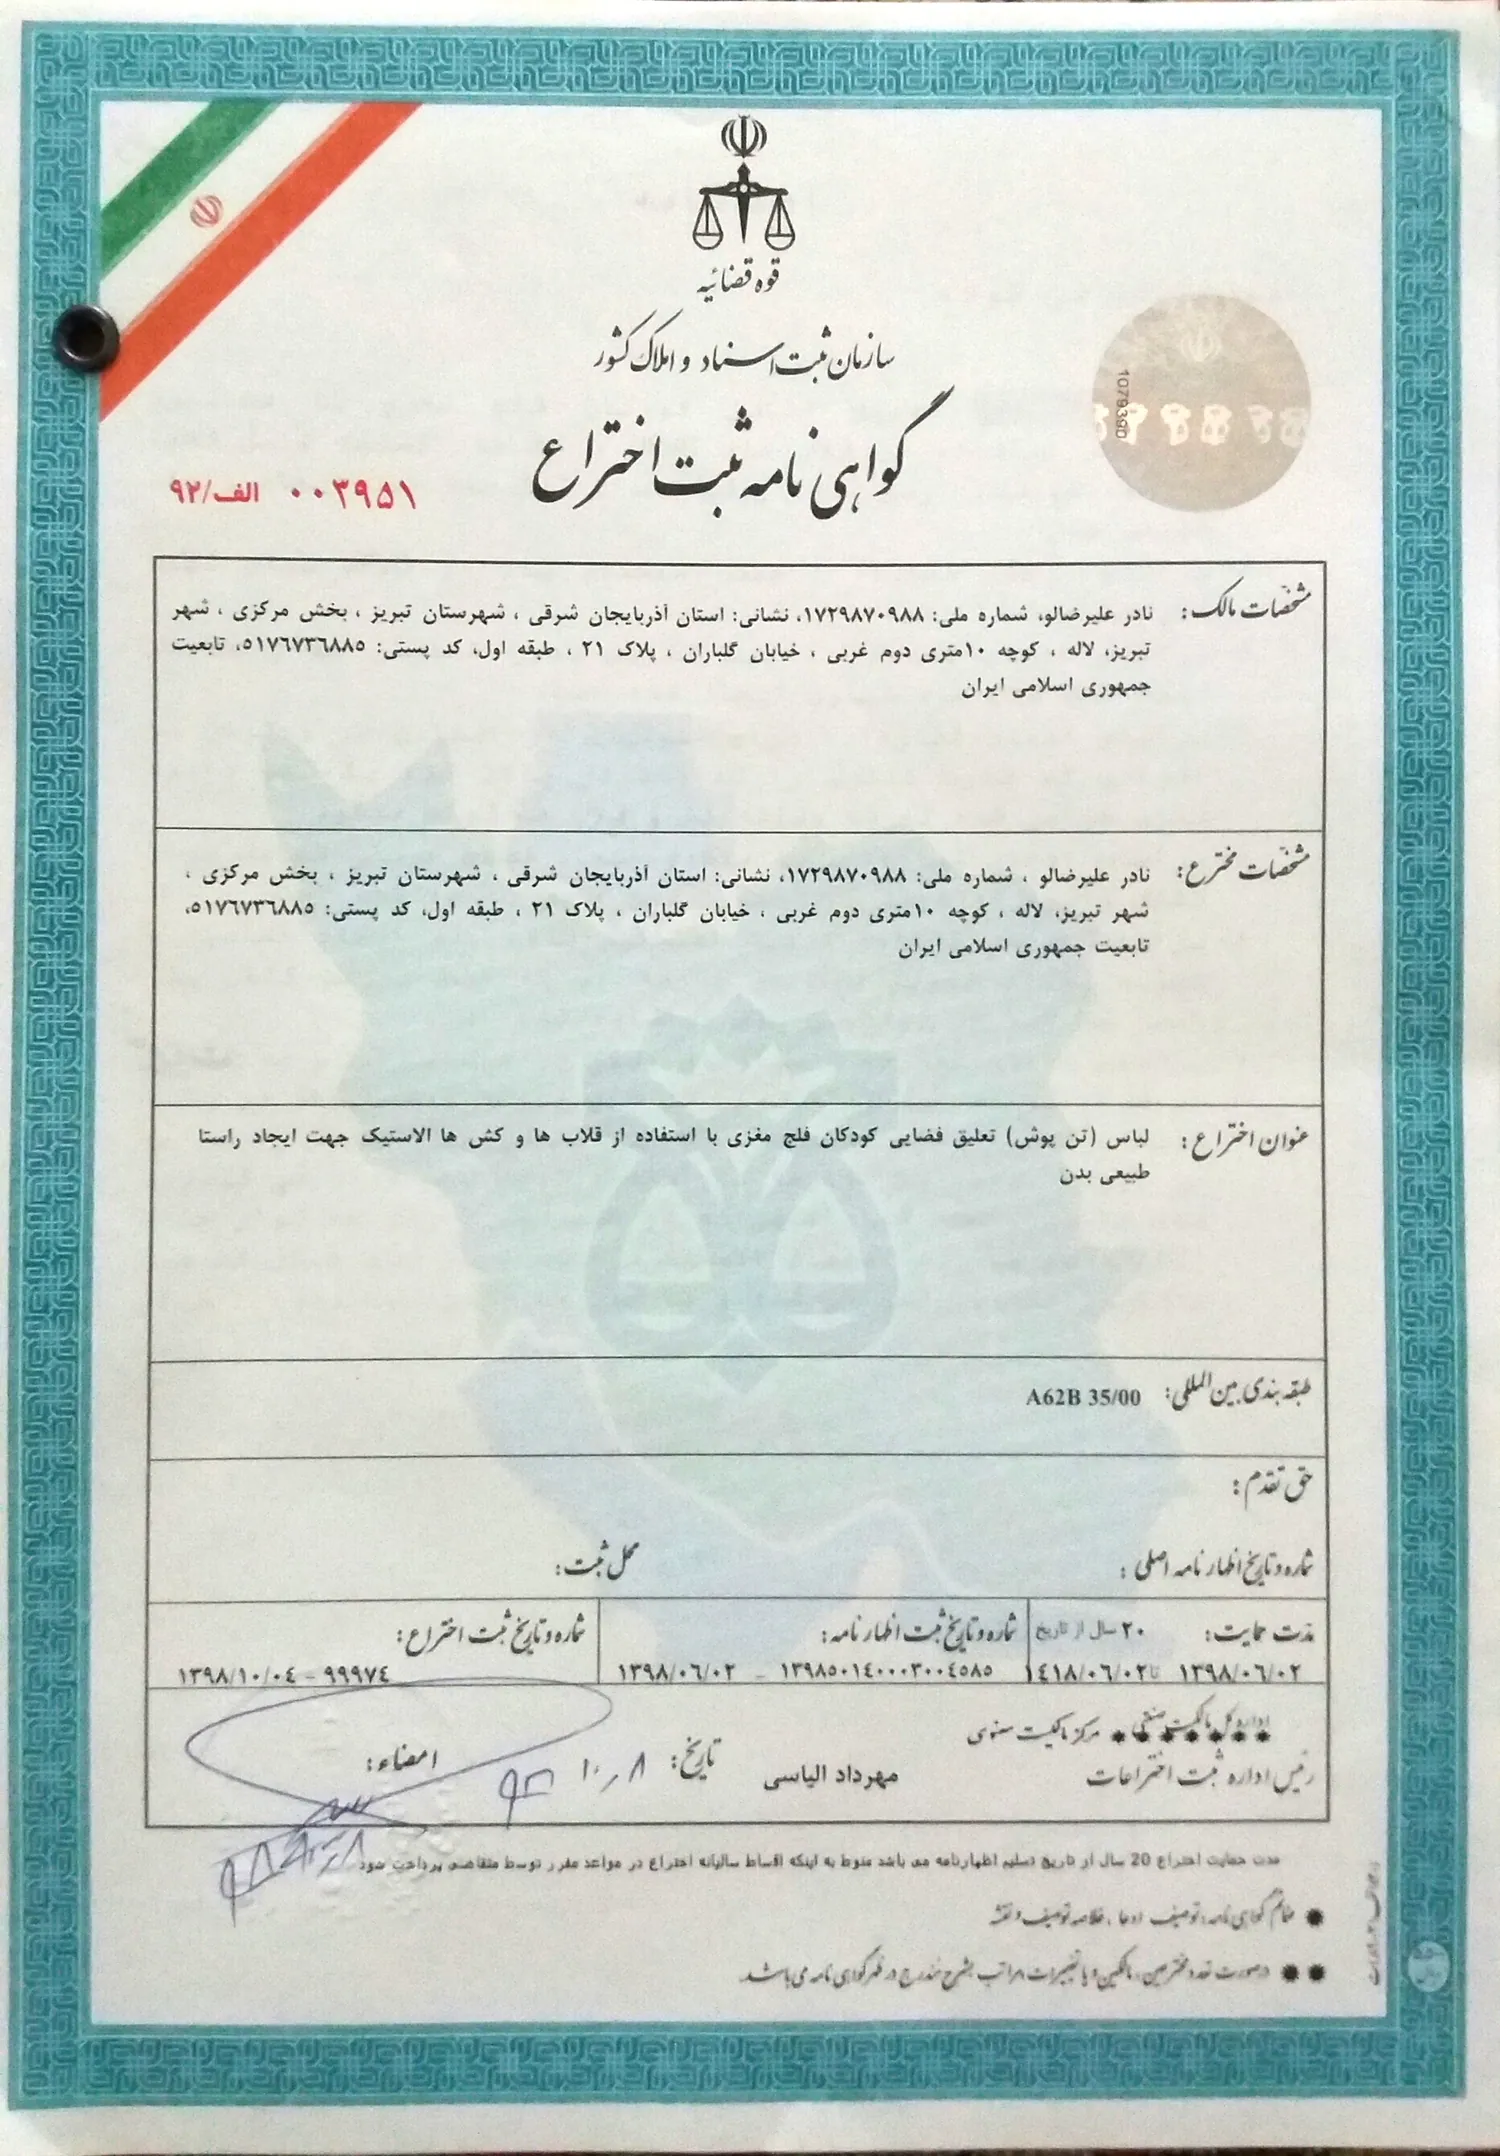 قوه قضائیه
سازمان ثبت اسناد و املاک کشور
گواهی نامه ثبت اختراع
۰۰۳۹۵۱ الف/۹۲
1079390
مشخصات مالک: نادر علیرضالو، شماره ملی: ۱۷۲۹۸۷۰۹۸۸، نشانی: استان آذربایجان شرقی ، شهرستان تبریز ، بخش مرکزی ، شهر
تبریز، لاله ، کوچه ۱۰متری دوم غربی ، خیابان گلباران ، پلاک ۲۱ ، طبقه اول، کد پستی: ۵۱۷۶۷۳۶۸۸۵، تابعیت
جمهوری اسلامی ایران
مشخصات مخترع: نادر علیرضالو ، شماره ملی: ۱۷۲۹۸۷۰۹۸۸، نشانی: استان آذربایجان شرقی ، شهرستان تبریز ، بخش مرکزی ،
شهر تبریز، لاله ، کوچه ۱۰متری دوم غربی ، خیابان گلباران ، پلاک ۲۱ ، طبقه اول، کد پستی: ۵۱۷۶۷۳۶۸۸۵،
تابعیت جمهوری اسلامی ایران
عنوان اختراع: لباس (تن پوش) تعلیق فضایی کودکان فلج مغزی با استفاده از قلاب ها و کش ها الاستیک جهت ایجاد راستا
طبیعی بدن
طبقه بندی بین المللی: A62B 35/00
حق تقدم:
شماره و تاریخ اظهار نامه اصلی: محل ثبت:
مدت حمایت: ۲۰ سال از تاریخ شماره و تاریخ ثبت اظهار نامه: شماره و تاریخ ثبت اختراع:
۱۳۹۸/۰۶/۰۲ تا ۱۴۱۸/۰۶/۰۲ ۱۳۹۸۵۰۱۴۰۰۰۳۰۰۴۵۸۵ - ۱۳۹۸/۰۶/۰۲ ۹۹۹۷۴ - ۱۳۹۸/۱۰/۰۴
اداره کل مالکیت صنعتی مرکز مالکیت معنوی
رئیس اداره ثبت اختراعات مهرداد الیاسی تاریخ: امضاء:
مدت حمایت اختراع 20 سال از تاریخ تسلیم اظهارنامه می باشد منوط به اینکه اقساط سالیانه اختراع در مواعد مقرر توسط متقاضی پرداخت شود
ضمائم گواهی نامه: توصیف، ادعا، خلاصه توصیف و نقشه
درصورت تعدد مخترعین، مالکین و یا تغییرات مراتب بشرح مندرج در ظهر گواهی نامه می باشد